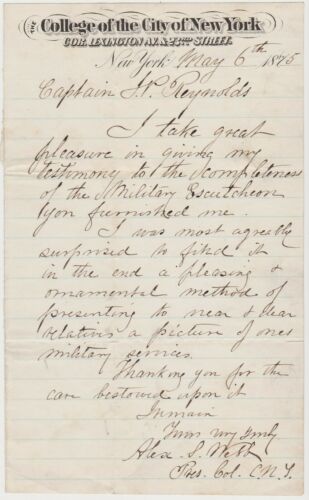 The College of the City of New York
COR. LEXINGTON AV. & 23RD STREET.
New York May 6th 1875
Captain J.P. Reynolds
I take great
pleasure in giving my
testimony to the completeness
of the Military Escutcheon
you furnished me.
I was most agreably
surprised to find it
in the end a pleasing &
ornamental method of
presenting to near & dear
relatives a picture of ones
military services.
Thanking you for the
care bestowed upon it
I remain
Yours very truly
Alex. S. Webb
Pres. Col. C.N.Y.